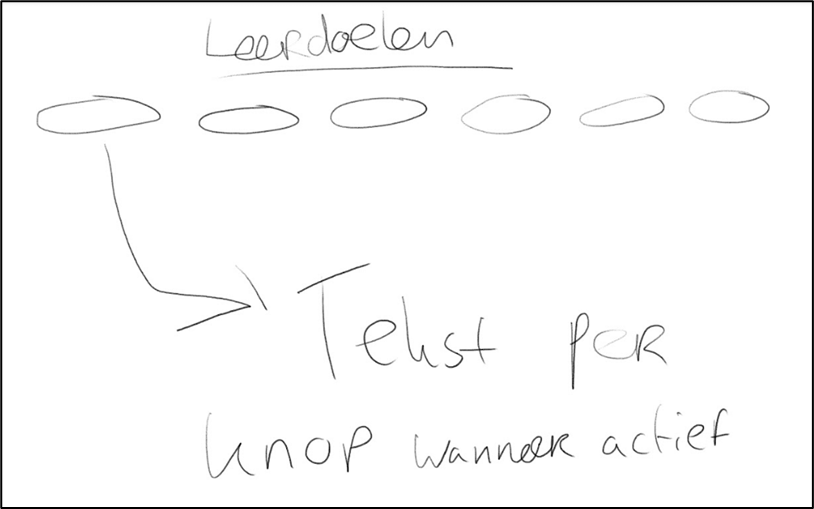 Leerdoelen
Tekst per
knop wanneer actief